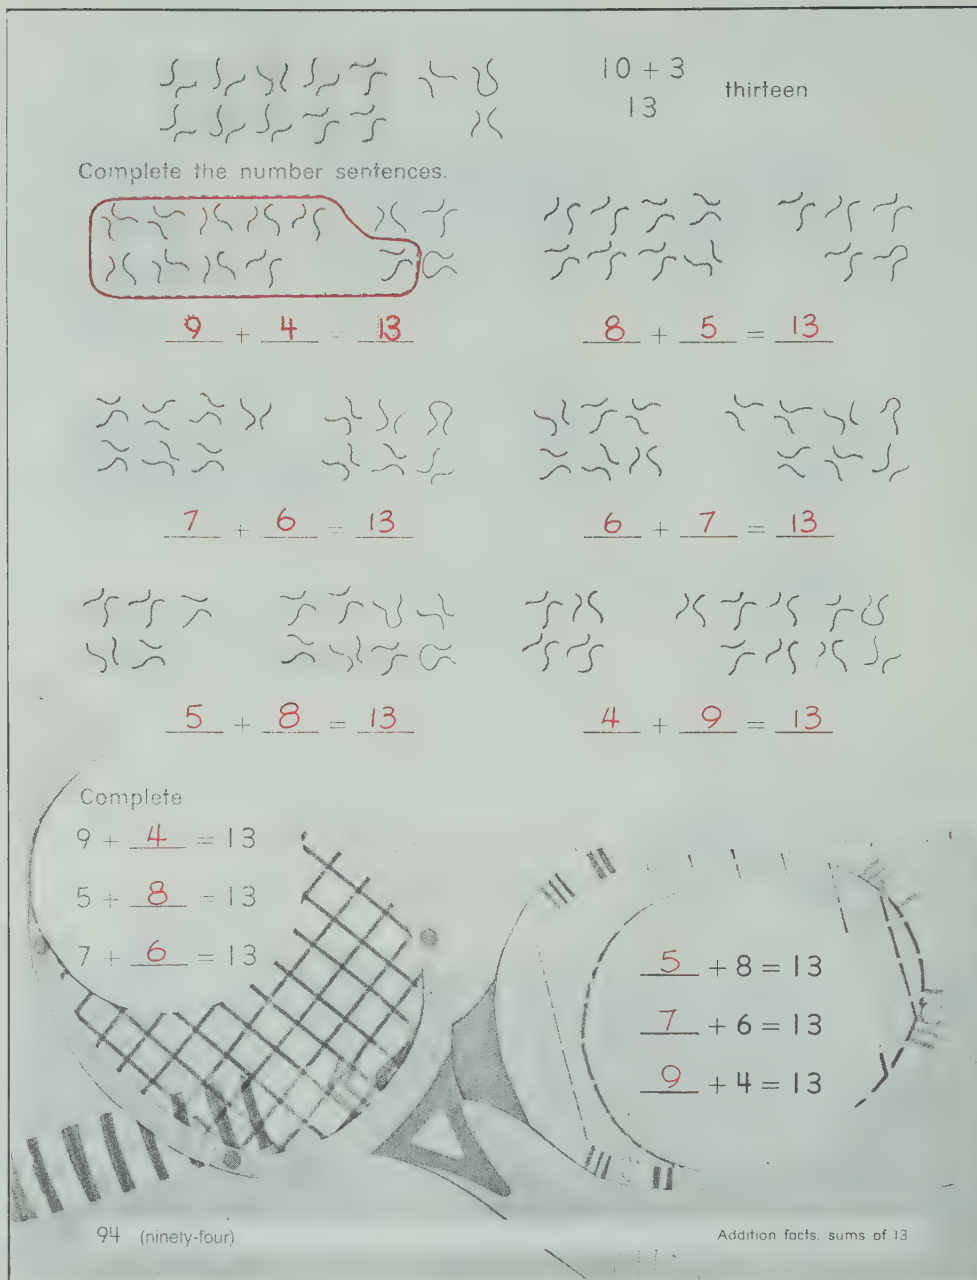 10 + 3
13
thirteen
Complete the number sentences.
9 + 4 = 13
8 + 5 = 13
7 + 6 = 13
6 + 7 = 13
5 + 8 = 13
4 + 9 = 13
Complete
9 + 4 = 13
5 + 8 = 13
7 + 6 = 13
5 + 8 = 13
7 + 6 = 13
9 + 4 = 13
94 (ninety-four)
Addition facts, sums of 13